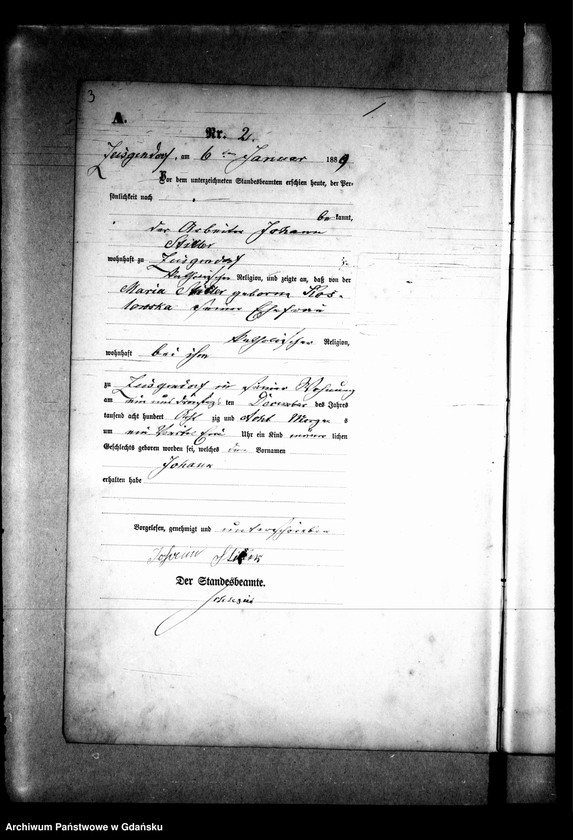 3
1
A.
Nr. 2.
Zeisgendorf, am 6ten Januar 1889
Vor dem unterzeichneten Standesbeamten erschien heute, der Per-
sönlichkeit nach
bekannt,
der Arbeiter Johann
wohnhaft zu Zeisgendorf
katholischer Religion, und zeigte an, daß von der
Maria geborene Kos-
lowska seiner Ehefrau
katholischer Religion,
wohnhaft bei ihm
zu Zeisgendorf in seiner Wohnung
am ein und dreißigsten ten December des Jahres
tausend acht hundert acht zig und acht Morgens
um ein Viertel Uhr ein Kind männlichen
Geschlechts geboren worden sei, welches den Vornamen
Johann
erhalten habe
Vorgelesen, genehmigt und unterschrieben
Johann
Der Standesbeamte.
Archiwum Państwowe w Gdańsku